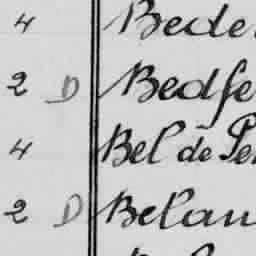 4 Bede
2 D Bedfe
4 Bel de Pe
2 D Belan